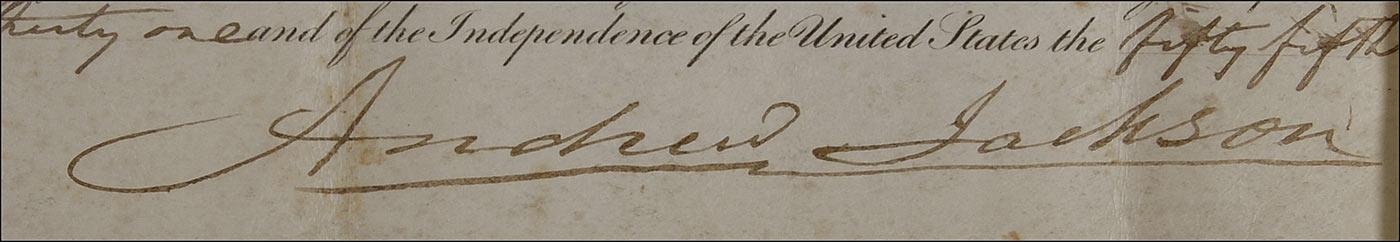 thirty one and of the Independence of the United States the fifty fifth
Andrew Jackson